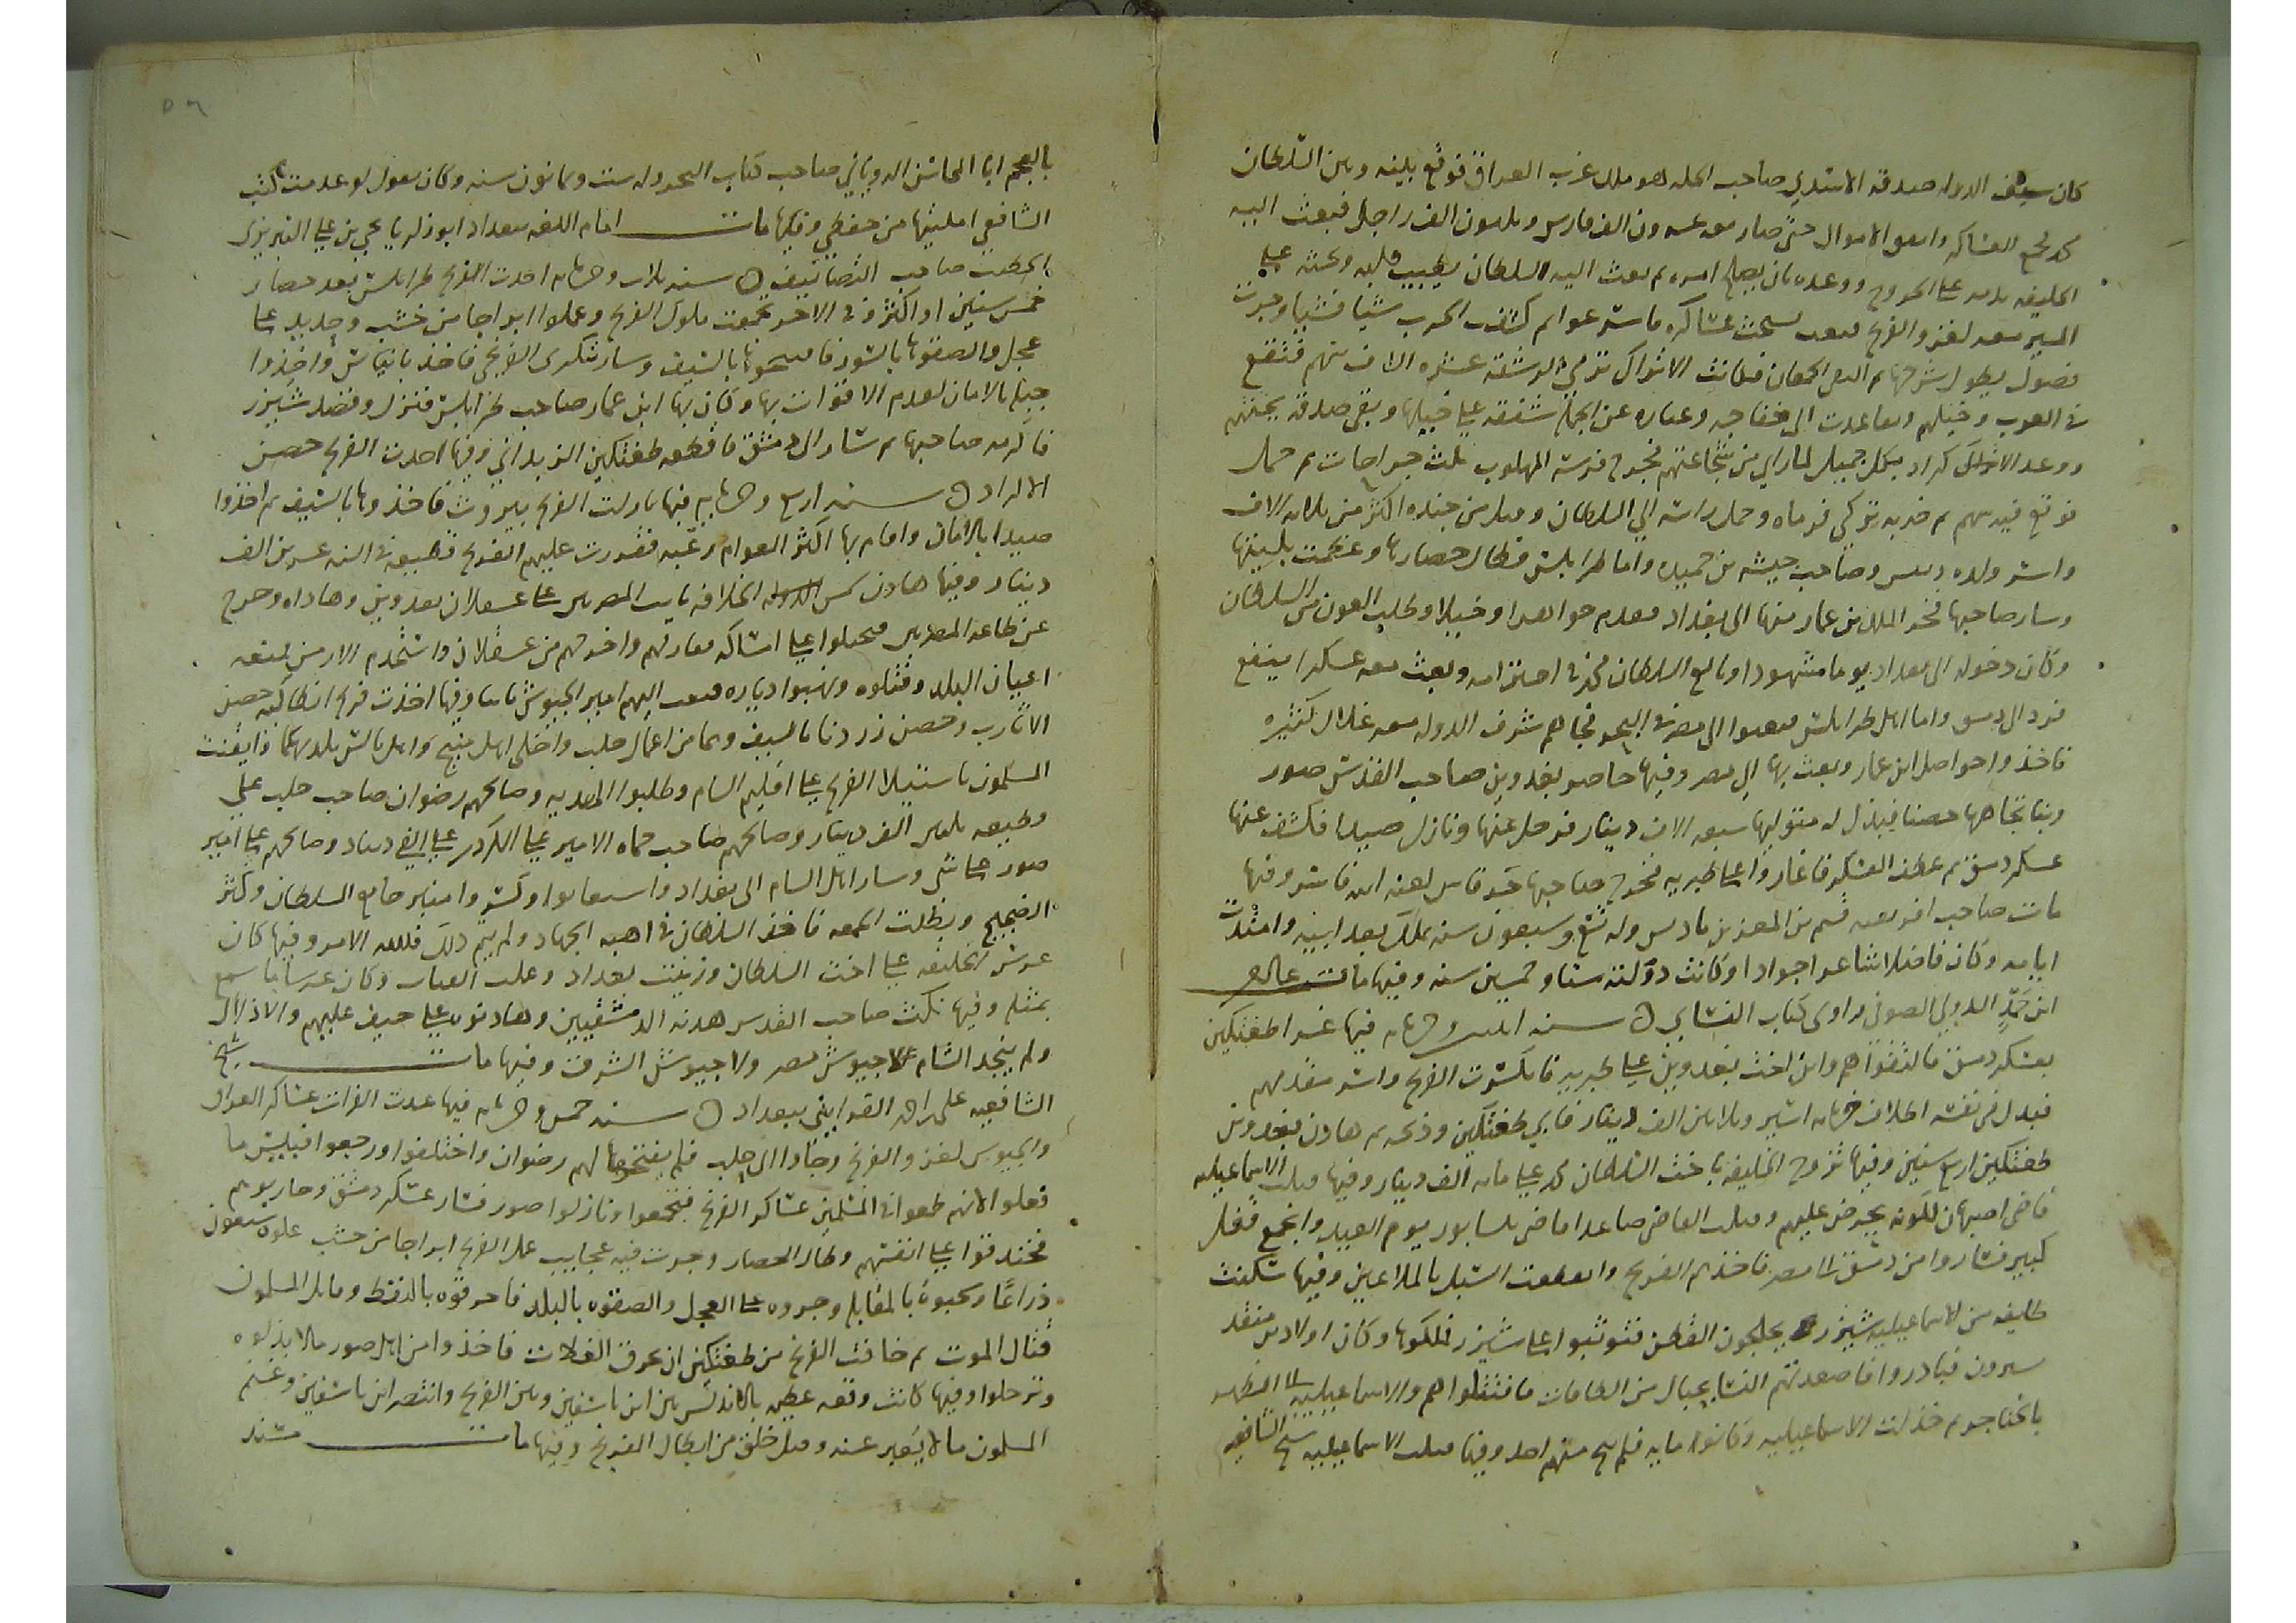 كان سيف الدوله صدقه الاسدي صاحب الحله هو ملك عرب العراق فوقع بينه وبين السلطان
محمد فجمع العساكر وانفق الاموال حتى صار معه عشرون الف فارس وثلثون الف راجل فبعث اليه
الخليفه على الخروج ووعده بان يصلح امره ثم بعث اليه السلطان يطيب قلبه وبحثه على
المسير معه لغزو الفرنج
فصول يطول شرحها ثم التقى الجمعان فكانت الاتراك ترمي الرشقه عشره الاف سهم فتقع
في العرب وخيلهم وتقاعدت الى خفاجه وعباده عن الحمله شفقه على خيلها وبقي صدقه بجنبهم
ووعد الاكراد بكل جميل لما راى من شجاعتهم فجرح فرسه المهلوب ثلث جراحات ثم حمل
فوقع فيه سهم ثم ضربه تركي فرماه وحمل راسه الى السلطان وقتل من جنده اكثر من ثلاثه الاف
واسر ولده دبيس وصاحب جيشه بن حميد واما طرابلس فطال حصارها وعظمت بليتها
وسار صاحبها فخر الملك بن عمار منها الى بغداد فقدم جواهرا وخيلا وطلب العون من السلطان
وكان دخوله الى بغداد يوما مشهودا وبالغ السلطان محمد في احترامه وبعث معه عسكرا ينفع
فرد الى دمشق واما اهل طرابلس فبعثوا الى مصر في البحر فجاهم شرف الدوله معه غلال كثيره
فاخذ وا حواصل ابن عمار وبعث بها الى مصر وفيها حاصر بغدوين صاحب القدس صور
وبنا تجاهها حصنا فبذل له متوليها سبعه الاف دينار فرحل عنها ونازل صيدا فكشف عنها
عسكر دمشق ثم عطف العسكر فاغاروا على طبريه فخرج صاحبها
مات صاحب افريقيه تميم بن المعز بن باديس وله تسع وسبعون سنه تملك بعد ابيه وامتدت
ايامه وكان فاضلا شاعرا جوادا وكانت دولته ستا وخمسين سنه وفيها مات
ابن حمد الدوني الصوفي راوي كتاب النسائي سنه اثنتين وخمس مايه فيها غزا طغتكين
بعسكر دمشق فالتقوا هم وابن اخت بغدوين على طبريه فانكسرت الفرنج واسر مقدمهم
فبذل في نفسه اطلاق خمس مايه اسير وثلاثين الف دينار فابى طغتكين وذبحه ثم هادن بغدوين
طغتكين اربع سنين وفيها تزوج الخليفه باخت السلطان محمد على مايه الف دينار وفيها قتلت الاسماعيليه
قاضي اصبهان لكونه يحرض عليهم وقتلت القاضي صاعدا قاضي نيسابور يوم العيد وانجمع قفل
كبير فساروا من دمشق الى مصر فاخذتهم الفرنج وانقطعت السبل بالملاعين وفيها سكنت
طايفه من الاسماعيليه شيزر يحلجون القطن فوثبوا على شيزر فملكوها وكان اولاد بن منقذ
سيرون فبادروا فاصعدتهم النسا بحبال من الطاقات فاقتتلوا هم والاسماعيليه الى الظهر
بالخناجر ثم خذلت الاسماعيليه وكانوا مايه فلم ينج منهم احد وفيها قتلت الاسماعيليه شيخ الشافعيه
٥٦
بالعجم ابا المحاسن الروياني صاحب كتاب البحر وله ست وثمانون سنه وكان يقول لو عدمت كتب
الشافعي امليتها من حفظي وفيها مات امام اللغه ببغداد ابو زكريا يحيى بن علي التبريزي
الخطيب صاحب التصانيف سنه ثلاث وخمس مايه اخذت الفرنج طرابلس بعد حصار
خمس سنين او اكثر وفي الاخر تجمعت ملوك الفرنج وعملوا ابراجا من خشب وحديد على
عجل والصقوها بالسور فافتتحوها بالسيف وسار تنكري الفرنجي فاخذ بانياس واخذوا
جبله بالامان لعدم الاقوات بها وكان بها ابن عمار صاحب طرابلس فنزل وقصد شيزر
فاكرمه صاحبها ثم سار الى دمشق فاقطعه طغتكين الزبداني وفيها اخذت الفرنج حصن
الاكراد سنه اربع وخمس مايه فيها نازلت الفرنج بيروت فاخذوها بالسيف ثم اخذوا
صيدا بالامان واقام بها اكثر العوام رعيه فقررت عليهم الفرنج قطيعه في السنه عشرين الف
دينار وفيها هادن شمس الخلافه نايب المصريين على عسقلان بغدوين وهاداه وخرج
عن طاعه المصريين فتحيلوا على امساكه واخرجهم من عسقلان واستخدم الارمن فمقته
اعيان البلد وقتلوه ونهبوا دياره فبعث اليهم امير الجيوش نايبا وفيها اخذت فرنج انطاكيه حصن
الاثارب وحصن زردنا بالسيف وهما من اعمال حلب واخلى اهل منبج واهل بالس بلديهما فايقنت
المسلمون باستيلا الفرنج على اقليم الشام وطلبوا الهدنه وصالحهم رضوان صاحب حلب على
قطيعه ثلثين الف دينار وصالحهم صاحب حماه الامير علي الكردي على الفي دينار وصالحهم على امير
صور على شي وسار اهل الشام الى بغداد واستغاثوا وكسروا منابر جامع السلطان وكثر
الضجيج وبطلت الجمعه فاخذ السلطان في اهبه الجهاد ولم يتم ذلك فلله الامر وفيها كان
عرس الخليفه على اخت السلطان وزينت بغداد وعملت القباب وكان عرسا ما سمع
بمثله وفيها نكث صاحب القدس هدنه الدمشقيين وهادنوه على حيف عليهم والاذلال
ولم ينجد الشام لا جيوش مصر ولا جيوش الشرق وفيها مات شيخ
الشافعيه ببغداد سنه خمس وخمس مايه فيها عدت الفرات عساكر العراق
والجيوش لغزو الفرنج وجاوا الى حلب فلم يفتحها لهم رضوان واختلفوا ورجعوا فبئس ما
فعلوا لانهم طمعوا في المسلمين عساكر الفرنج فتجمعوا ونازلوا صور فسار عسكر دمشق وحاربوهم
فخندقوا على انفسهم وطال الحصار وجرت فيه عجايب عمل الفرنج ابراجا من خشب علوه سبعون
ذراعا وركبوه بالمقابله وجروه على العجل والصقوه بالبلد فاحرقوه بالنفط وقاتل المسلمون
قتال الموت ثم خافت الفرنج من طغتكين ان يحرق الغلات فاخذوا من اهل صور مالا بذلوه
وترحلوا وفيها كانت وقعه عظيمه بالاندلس بين ابن تاشفين وبين الفرنج وانتصر ابن تاشفين وغنم
المسلمون ما لا يعبر عنه وقتل خلق من ابطال الفرنج وفيها مات مسند